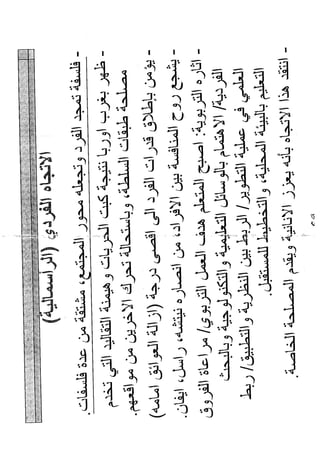 الاتجاه الفردي (الرأسمالية)
- فلسفة تمجد الفرد وتجعله محور المجتمع، مشتقة من عدة فلسفات.
- ظهر بغرب اوربا نتيجة كبت الحريات وهيمنة التقاليد التي تخدم
مصلحة طبقات السلطة، وباستحالة تحرك الاخرين من مواقعهم.
- يؤمن بإطلاق قدرات الفرد الى اقصى درجة (ازالة العوائق امامه)
- يشجع روح المنافسة بين الافراد، من انصاره نيتشه، راسل، ايفان.
- اثاره التربوية: اصبح المتعلم هدف العمل التربوي/ مراعاة الفروق
الفردية/ الاهتمام بالوسائل التعليمية والتكنولوجية وبالبحث
العلمي في عملية التطوير/ الربط بين النظرية والتطبيق/ ربط
التعليم بالبيئة المحلية، والتخطيط للمستقبل.
- انتقد هذا الاتجاه بأنه يعزز الانانية ويقدم المصلحة الخاصة.